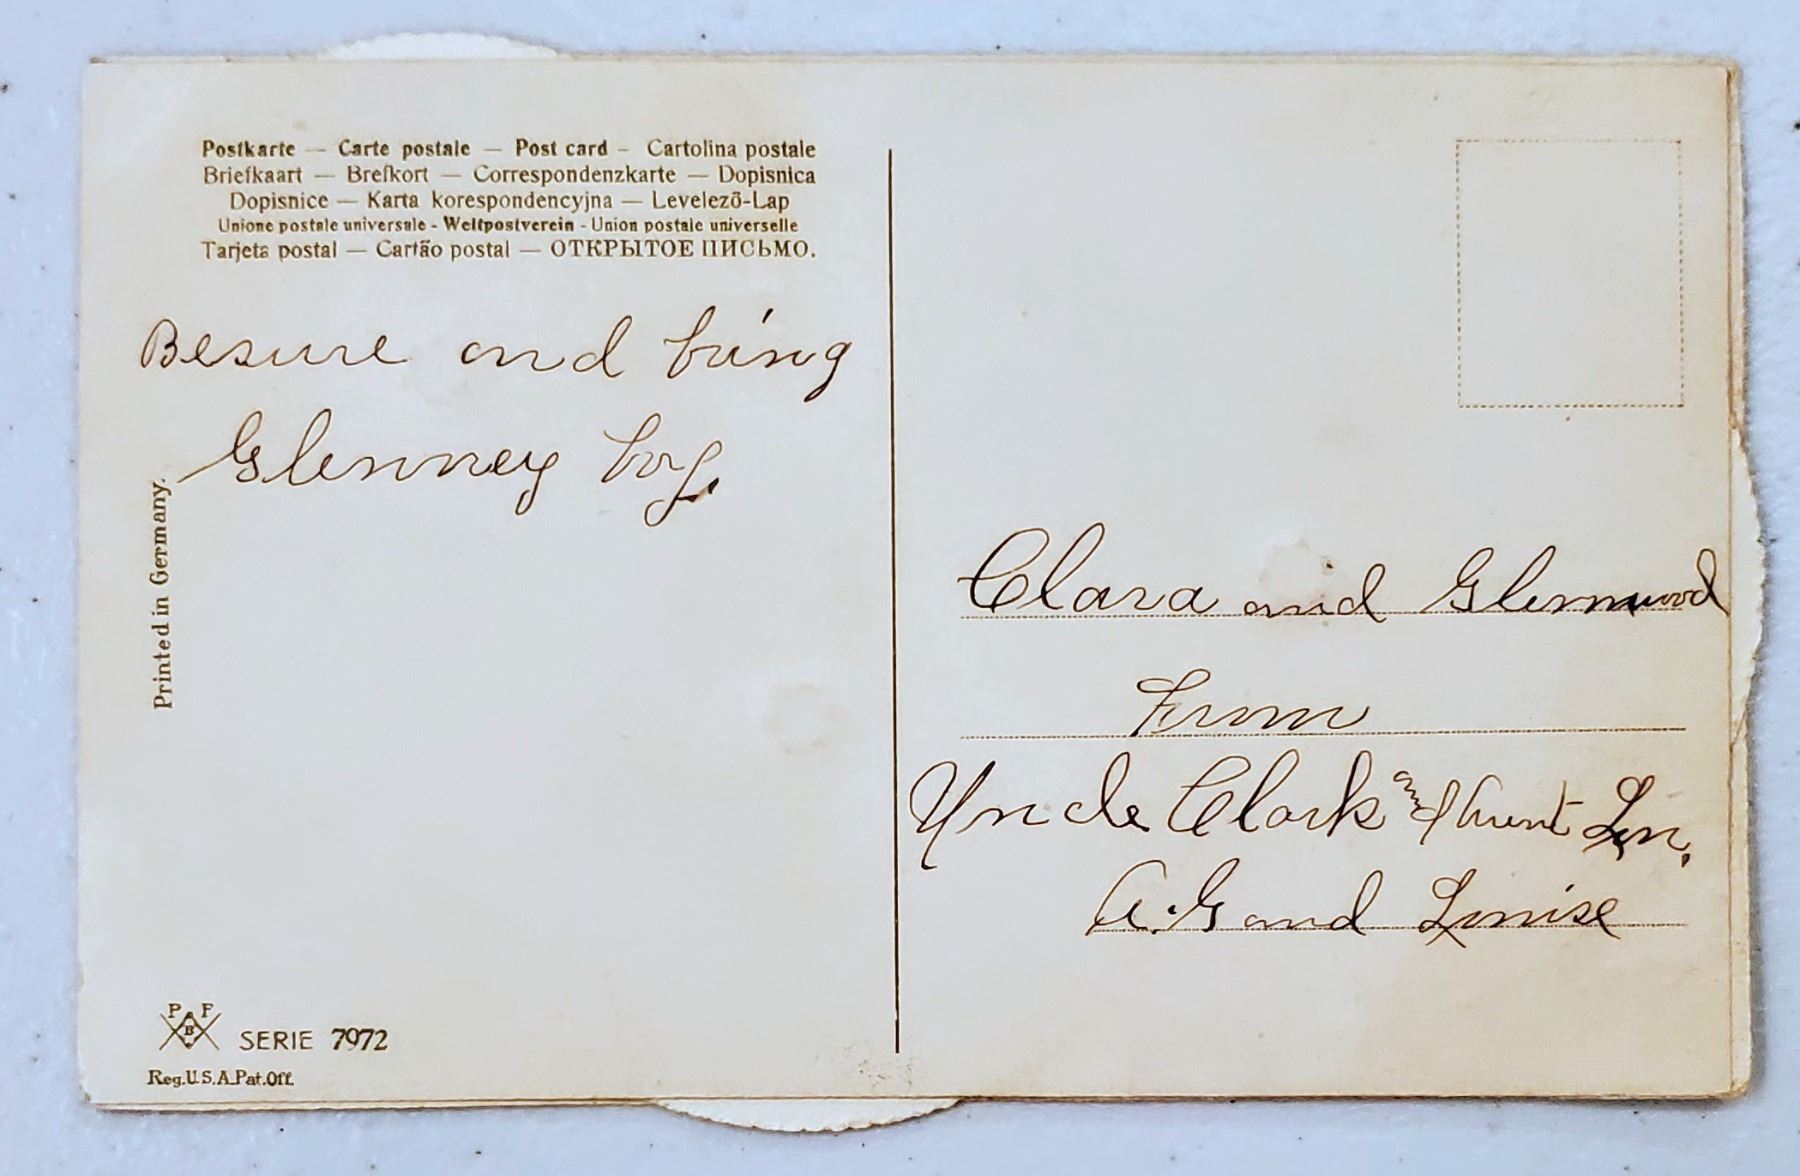 Postkarte — Carte postale — Post card – Cartolina postale
Briefkaart — Brefkort — Correspondenzkarte — Dopisnica
Dopisnice — Karta korespondencyjna — Levelező-Lap
Unione postale universale - Weltpostverein - Union postale universelle
Tarjeta postal — Cartão postal — ОТКРЫТОЕ ПИСЬМО.
Besure and bring
Glenney boy.
Printed in Germany.
Clara and Glennwood
From
Uncle Clark and Aunt Lou.
A.G and Louise
P F
B
SERIE 7972
Reg.U.S.A.Pat.Off.